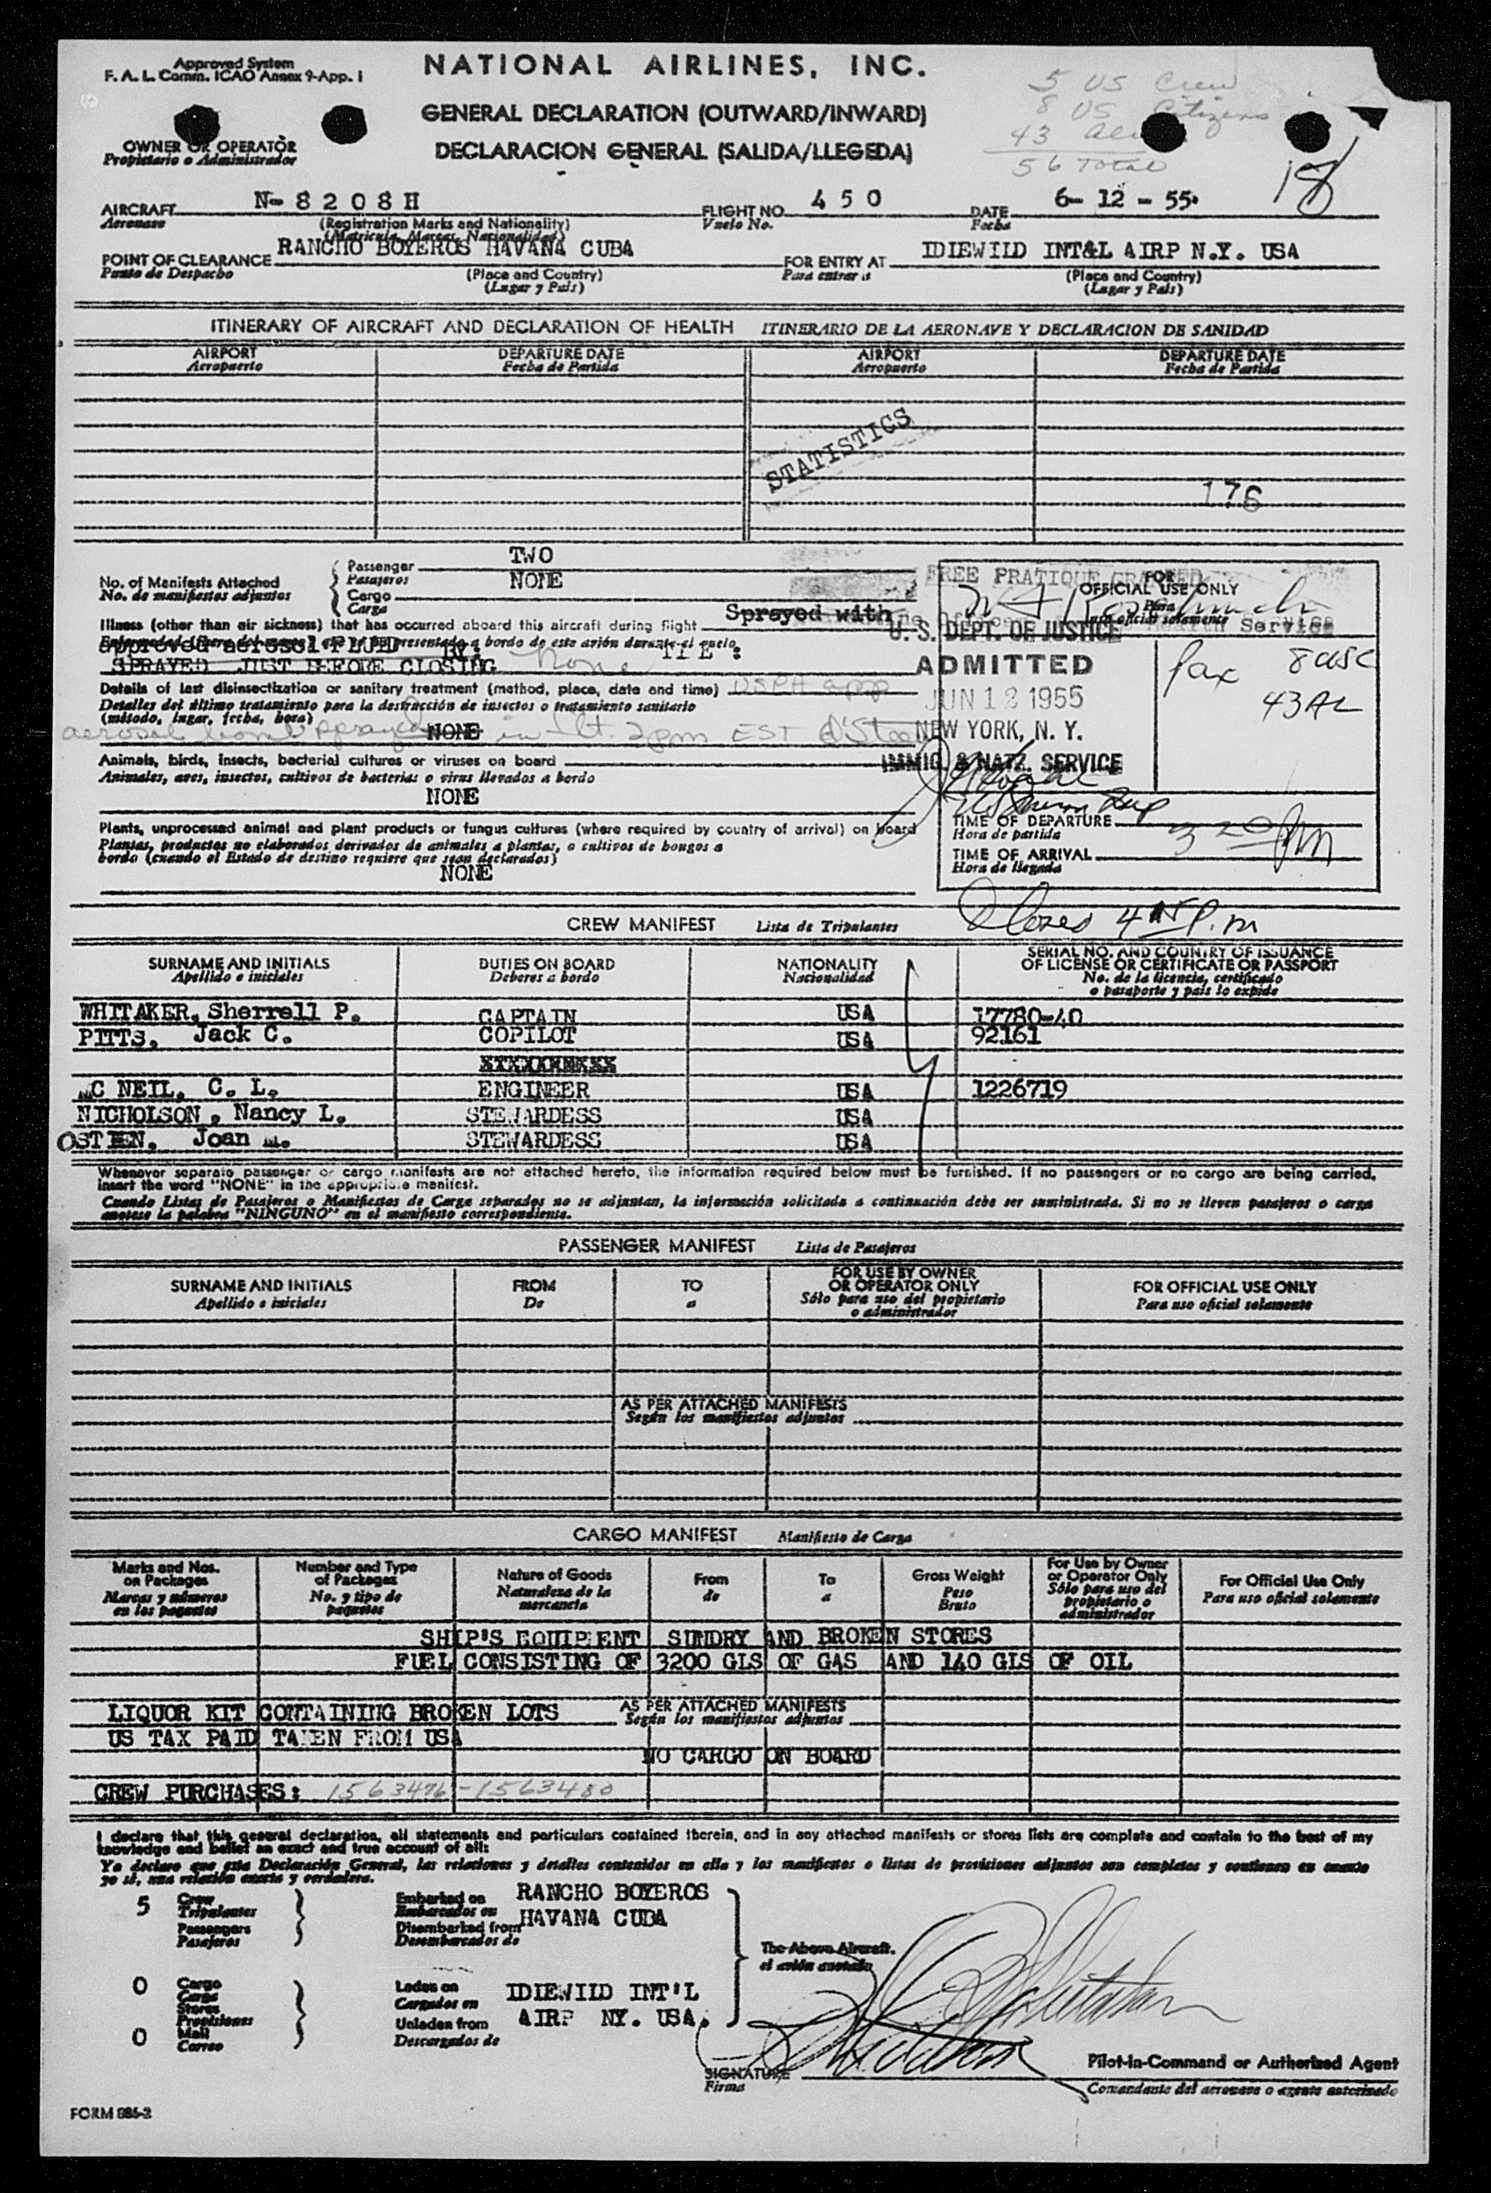 Approved System
F. A. L. Comm. ICAO Annex 9-App. I
NATIONAL AIRLINES, INC.
5 US Crew
8 US Citizens
43
56 Total
GENERAL DECLARATION (OUTWARD/INWARD)
DECLARACION GENERAL (SALIDA/LLEGEDA)
OWNER OR OPERATOR
Propietario o Administrador
18
AIRCRAFT N-8208H FLIGHT NO. 450 DATE 6-12-55.
Aeronave (Registration Marks and Nationality) Vuelo No. Fecha
(Matricula, Marcas, Nacionalidad)
POINT OF CLEARANCE RANCHO BOYEROS HAVANA CUBA FOR ENTRY AT IDIEWILD INT&L AIRP N.Y. USA
Punto de Despacho (Place and Country) Para entrar a (Place and Country)
(Lugar y País) (Lugar y País)
ITINERARY OF AIRCRAFT AND DECLARATION OF HEALTH ITINERARIO DE LA AERONAVE Y DECLARACION DE SANIDAD
AIRPORT DEPARTURE DATE AIRPORT DEPARTURE DATE
Aeropuerto Fecha de Partida Aeropuerto Fecha de Partida
STATISTICS
176
No. of Manifests Attached
No. de manifiestos adjuntos
Passenger TWO
Pasajeros
Cargo NONE
Carga
FREE PRATIQUE GRANTED
FOR
OFFICIAL USE ONLY
Para
uso oficial solamente
Health Service
Illness (other than air sickness) that has occurred aboard this aircraft during flight Sprayed with
approved aerosol FLUID
SPRAYED JUST BEFORE CLOSING None
Details of last disinsectization or sanitary treatment (method, place, date and time) USPH app
Detalles del último tratamiento para la destrucción de insectos o tratamiento sanitario
(método, lugar, fecha, hora)
aerosol bomb sprayed NONE in flt. 2pm EST
U. S. DEPT. OF JUSTICE
ADMITTED
JUN 12 1955
NEW YORK, N. Y.
IMMIG. & NATZ. SERVICE
Pax 8 USC
43 AL
Animals, birds, insects, bacterial cultures or viruses on board
Animales, aves, insectos, cultivos de bacterias o virus llevados a bordo
NONE
Plants, unprocessed animal and plant products or fungus cultures (where required by country of arrival) on board
Plantas, productos no elaborados derivados de animales a plantas, o cultivos de hongos a
bordo (cuando el Estado de destino requiere que sean declarados)
NONE
TIME OF DEPARTURE
Hora de partida
TIME OF ARRIVAL 3 20 pm
Hora de llegada
Closed 4 15 P.m
CREW MANIFEST Lista de Tripulantes
SURNAME AND INITIALS DUTIES ON BOARD NATIONALITY SERIAL NO. AND COUNTRY OF ISSUANCE
OF LICENSE OR CERTIFICATE OR PASSPORT
Apellido e iniciales Deberes a bordo Nacionalidad No. de la licencia, certificado
o pasaporte y país lo expide
WHITAKER, Sherrell P. CAPTAIN USA 17780-40
PITTS, Jack C. COPILOT USA 92161
MC NEIL, C. L. ENGINEER USA 1226719
NICHOLSON, Nancy L. STEWARDESS USA
OSTEEN, Joan M. STEWARDESS USA
Whenever separate passenger or cargo manifests are not attached hereto, the information required below must be furnished. If no passengers or no cargo are being carried,
insert the word "NONE" in the appropriate manifest.
Cuando Listas de Pasajeros o Manifiestos de Carga separados no se adjuntan, la información solicitada a continuación debe ser suministrada. Si no se lleven pasajeros o carga
anotese la palabra "NINGUNO" en el manifiesto correspondiente.
PASSENGER MANIFEST Lista de Pasajeros
SURNAME AND INITIALS FROM TO FOR USE BY OWNER
OR OPERATOR ONLY FOR OFFICIAL USE ONLY
Apellido e iniciales De a Sólo para uso del propietario
o administrador Para uso oficial solamente
AS PER ATTACHED MANIFESTS
Según los manifiestos adjuntos
CARGO MANIFEST Manifiesto de Carga
Marks and Nos.
on Packages
Marcas y números
en los paquetes
Number and Type
of Packages
No. y tipo de
paquetes
Nature of Goods
Naturaleza de la
mercancia
From
de
To
a
Gross Weight
Peso
Bruto
For Use by Owner
or Operator Only
Sólo para uso del
propietario o
administrador
For Official Use Only
Para uso oficial solamente
SHIP'S EQUIPMENT SUNDRY AND BROKEN STORES
FUEL CONSISTING OF 3200 GLS OF GAS AND 140 GLS OF OIL
LIQUOR KIT CONTAINING BROKEN LOTS AS PER ATTACHED MANIFESTS
Según los manifiestos adjuntos
US TAX PAID TAKEN FROM USA
NO CARGO ON BOARD
CREW PURCHASES: 1563476-1563480
I declare that this general declaration, all statements and particulars contained therein, and in any attached manifests or stores lists are complete and contain to the best of my
knowledge and belief an exact and true account of all:
Yo declaro que esta Declaración General, las relaciones y detalles contenidos en ella y los manifiestos o listas de provisiones adjuntos son completos y contienen en cuanto
yo sé, una relación exacta y verdadera.
5 Crew
Tripulantes
Passengers
Pasajeros
Embarked on RANCHO BOYEROS
Embarcados en
Disembarked from HAVANA CUBA
Desembarcados de
The Above Aircraft.
el avión anotado
0 Cargo
Carga
Stores
Provisiones
0 Mail
Correo
Laden on IDIEWILD INT'L
Cargados en
Unladen from AIRP NY. USA.
Descargados de
SIGNATURE
Firma
Pilot-in-Command or Authorized Agent
Comandante del aeronave o agente autorizado
FORM 886-2